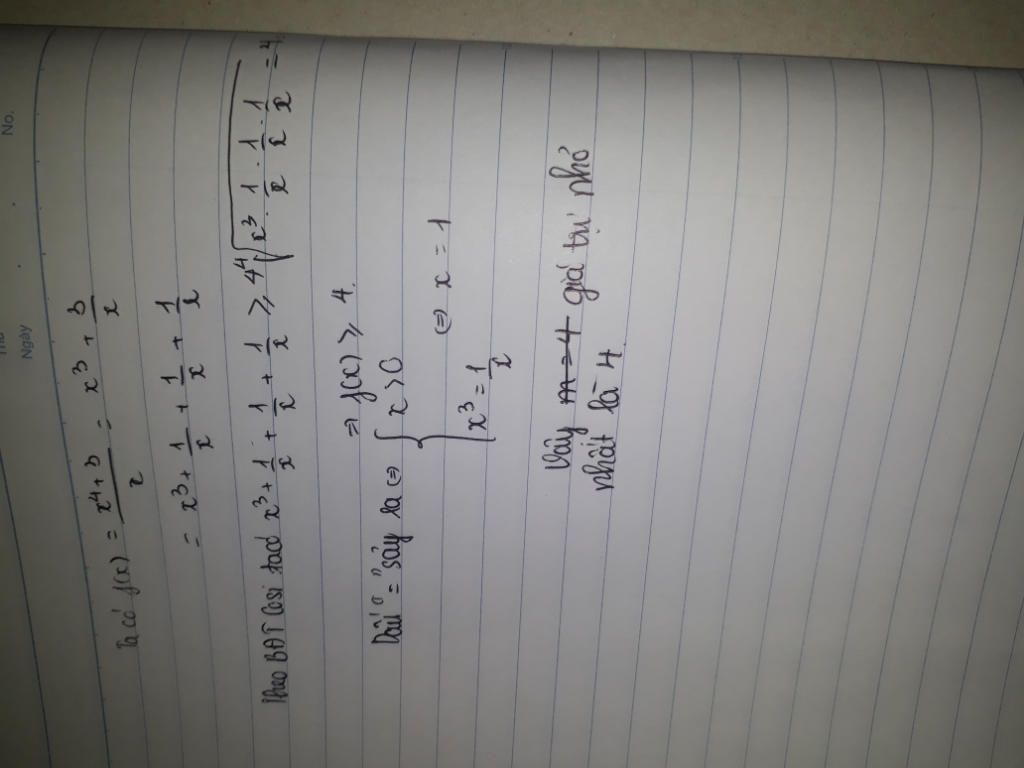 No.
Thứ
Ngày
Ta có f(x) = \frac{x^4+3}{x} = x^3 + \frac{3}{x}
= x^3 + \frac{1}{x} + \frac{1}{x} + \frac{1}{x}
Theo BĐT Cosi ta có x^3 + \frac{1}{x} + \frac{1}{x} + \frac{1}{x} ≥ 4\sqrt[4]{x^3 \cdot \frac{1}{x} \cdot \frac{1}{x} \cdot \frac{1}{x}} = 4
⇒ f(x) ≥ 4.
Dấu "=" sảy ra ⇔ { x > 0
x^3 = \frac{1}{x} ⇔ x = 1
Vậy m = 4 giá trị nhỏ
nhất là 4